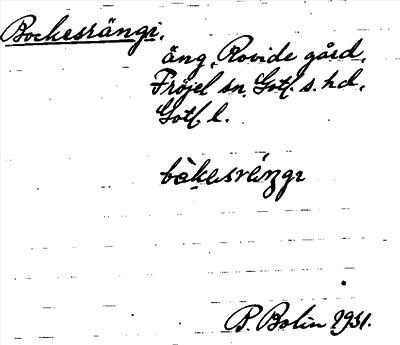 Bockesrängi.
äng, Rovide gård,
Fröjel sn. Gotl. s. hd,
Gotl l.
bòkesrénzgi
B. Bolin 1931.